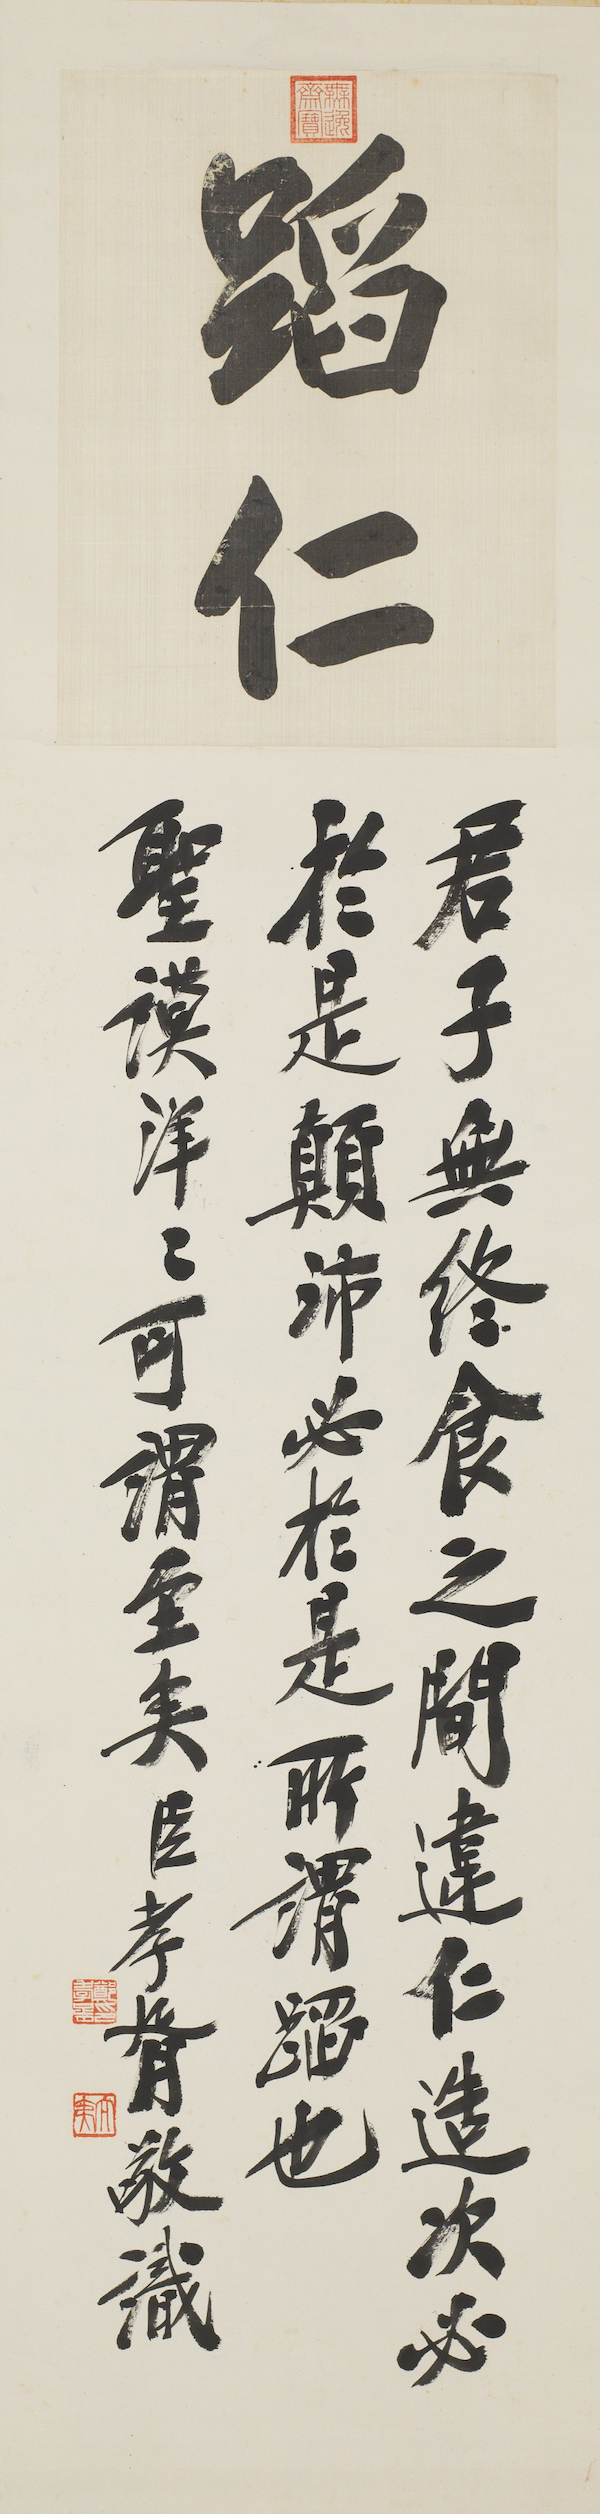 無逸齋寶
蹈仁
君子無終食之間違仁造次必
於是顛沛必於是所謂蹈也
聖謨洋〻可謂至矣臣孝胥敬識